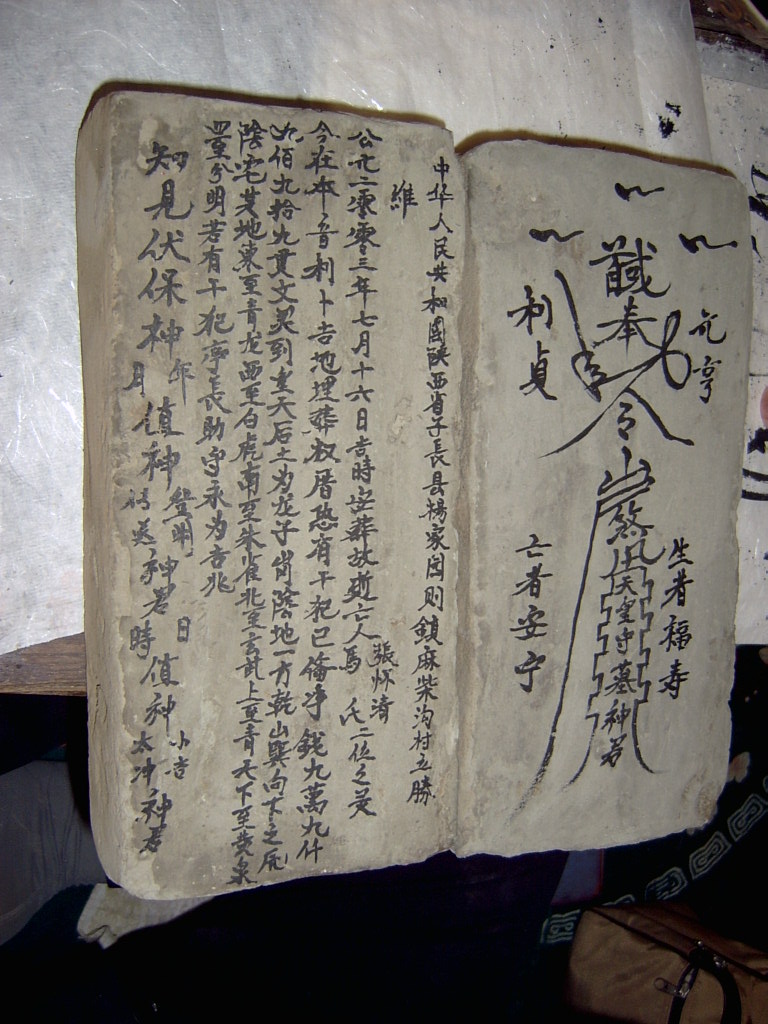 元亨
利貞
奉
令
煞
天皇守墓神君
生者福寿
亡者安宁
中华人民共和國陝西省子長县楊家园则鎮麻柴沟村立勝
維
公元二零零三年七月十六日吉時安葬故逝亡人張怀清馬氏二位之灵
今在本音利卜吉地埋葬权厝恐有干犯已俻净錢九萬九仟
九佰九拾九贯文買到皇天后土为龙子岗陰地一方乾山巽向下之厷
陰宅其地東至青龙西至白虎南至朱雀北至玄武上至青天下至黄泉
四至分明若有干犯亭長助守永为吉兆
知見伏保神年值神登明
月值神传送神君日時值神小吉太冲神君